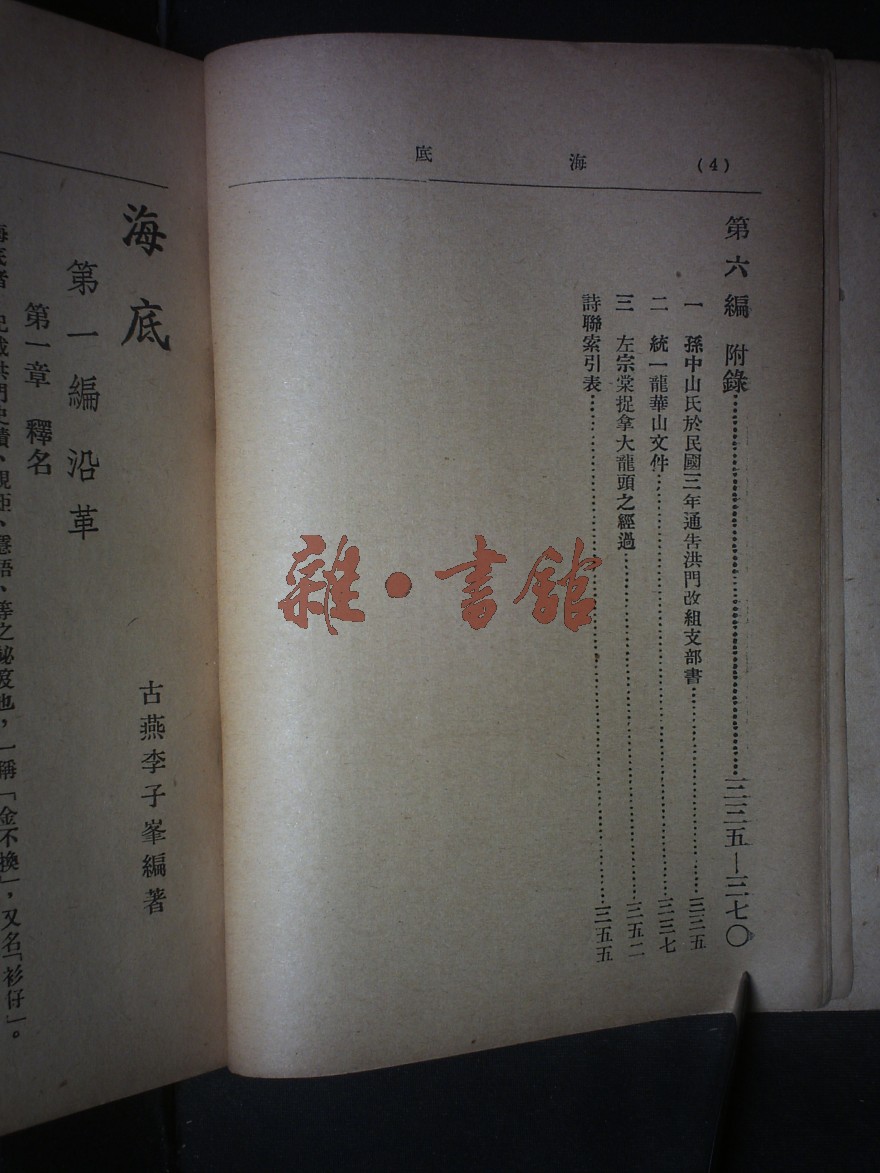 (4) 海 底
第六編 附錄……三三五—三七〇
一 孫中山氏於民國三年通告洪門改組支部書……三三五
二 統一龍華山文件……三三七
三 左宗棠捉拿大龍頭之經過……三五二
詩聯索引表……三五五
雜·書館
海底
古燕李子峯編著
第一編 沿革
第一章 釋名
海底者 記載洪門史蹟、規矩、隱語、等之祕笈也，一稱「金不換」，又名「衫仔」。